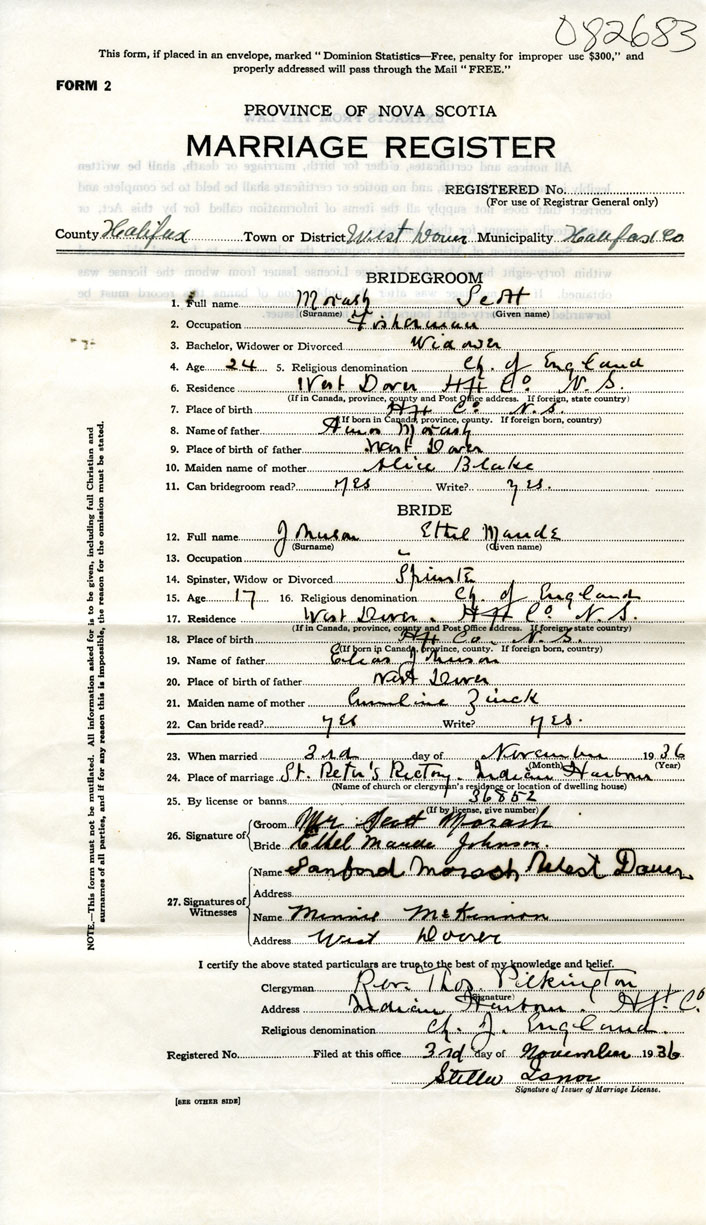 082683
This form, if placed in an envelope, marked "Dominion Statistics—Free, penalty for improper use $300," and
properly addressed will pass through the Mail "FREE."
FORM 2
PROVINCE OF NOVA SCOTIA
MARRIAGE REGISTER
REGISTERED No.
(For use of Registrar General only)
County Halifax Town or District West Dover Municipality Halifax Co
BRIDEGROOM
1. Full name Morash Scott
(Surname) (Given name)
2. Occupation Fisherman
3. Bachelor, Widower or Divorced Widower
4. Age 24 5. Religious denomination Ch. of England
6. Residence West Dover Hfx Co N. S.
(If in Canada, province, county and Post Office address. If foreign, state country)
7. Place of birth Hfx Co N. S.
(If born in Canada, province, county. If foreign born, country)
8. Name of father Morash
9. Place of birth of father West Dover
10. Maiden name of mother Alice Blake
11. Can bridegroom read? yes Write? yes.
BRIDE
12. Full name Johnson Ethel Maude
(Surname) (Given name)
13. Occupation
14. Spinster, Widow or Divorced Spinster
15. Age 17 16. Religious denomination Ch. of England
17. Residence West Dover. Hfx Co N. S.
(If in Canada, province, county and Post Office address. If foreign, state country)
18. Place of birth Hfx Co. N. S.
(If born in Canada, province, county. If foreign born, country)
19. Name of father Elias Johnson
20. Place of birth of father West Dover
21. Maiden name of mother Zinck
22. Can bride read? yes Write? yes.
23. When married 3rd day of November 1936
(Month) (Year)
24. Place of marriage St. Peter's Rectory. Indian Harbour
(Name of church or clergyman's residence or location of dwelling house)
25. By license or banns 36852
(If by license, give number)
26. Signature of
Groom Mr Scott Morash
Bride Ethel Maude Johnson.
27. Signatures of Witnesses
Name Sanford Morash West Dover
Address
Name Minnie McKinnon
Address West Dover
I certify the above stated particulars are true to the best of my knowledge and belief.
Clergyman Rev. Thos. Pilkington
(Signature)
Address Indian Harbour. Hfx Co
Religious denomination Ch. of England.
Registered No. Filed at this office 3rd day of November 1936
Stella Isnor
Signature of Issuer of Marriage License.
[SEE OTHER SIDE]
NOTE.—This form must not be mutilated. All information asked for is to be given, including full Christian and
surnames of all parties, and if for any reason this is impossible, the reason for the omission must be stated.